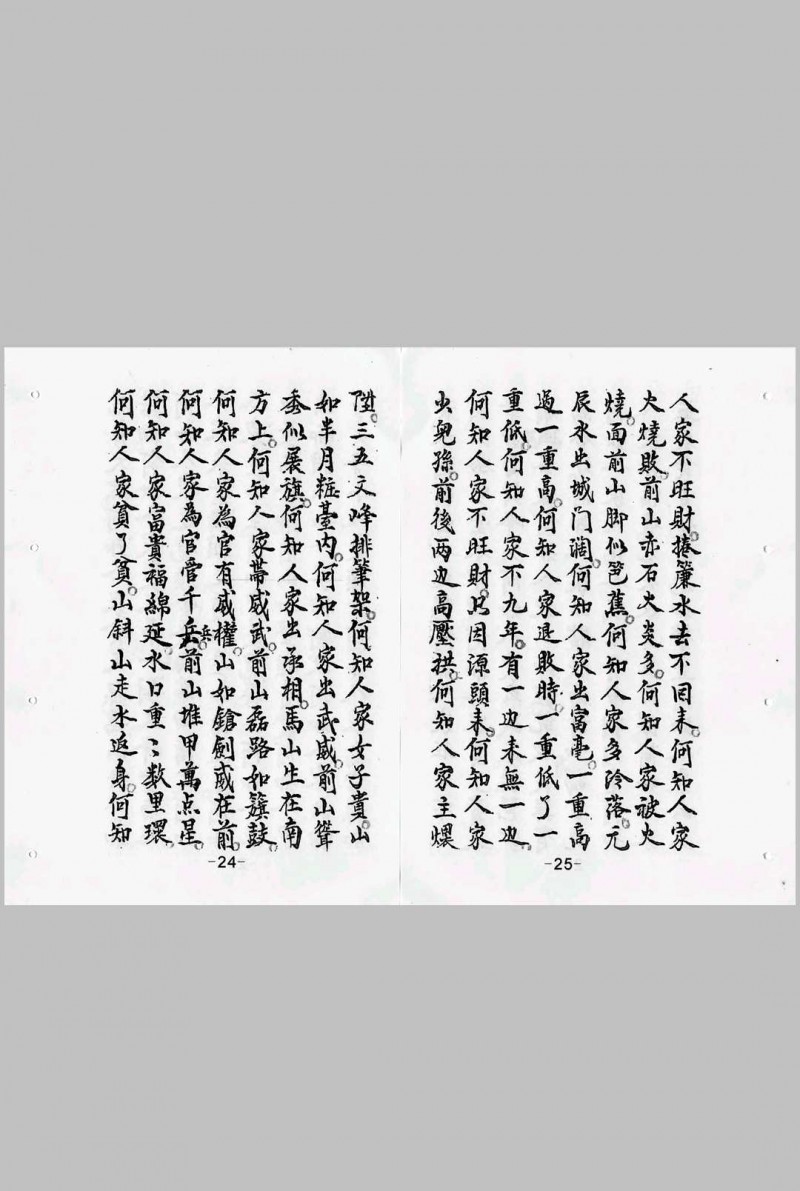 陞。三五文峰排筆架。何知人家女子貴。山
如半月粧臺内。何知人家出武威。前山聳
垂似展旗。何知人家出承相。馬山生在南
方上。何知人家帶威武。前山磊路如簱鼓。
何知人家為官有威權。山如鎗劍威在前。
何知人家為官管千岳兵。前山堆甲萬点星。
何知人家富貴福綿延。水口重〻数里環。
何知人家貧了貧。山斜山走水返身。何知
-24-
人家不旺財。捲簾水去不回来。何知人家
火燒敗。前山赤石火炎多。何知人家被火
燒。面前山脚似芭蕉。何知人家多冷落。元
辰水出城门濶。何知人家出富毫。一重高
過一重高。何知人家退敗時。一重低了一
重低。何知人家不九年。有一边来無一边。
何知人家不旺財。只因源頭来。何知人家
虫兒孫。前後两边高壓拱。何知人家主煨
-25-